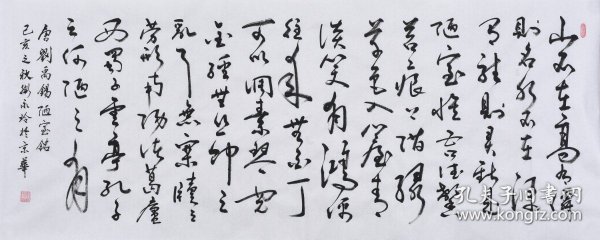 山不在高有僊
則名水不在深
有龍則靈斯是
陋室惟吾德馨
苔痕上階綠
草色入簾青
談笑有鴻儒
往來無白丁
可以調素琴閱
金經無絲竹之
亂耳無案牘之
勞形南陽諸葛廬
西蜀子雲亭孔子
云何陋之有
唐劉禹錫陋室銘
己亥之秋永於京華
孔夫子旧书网
www.kongfz.com